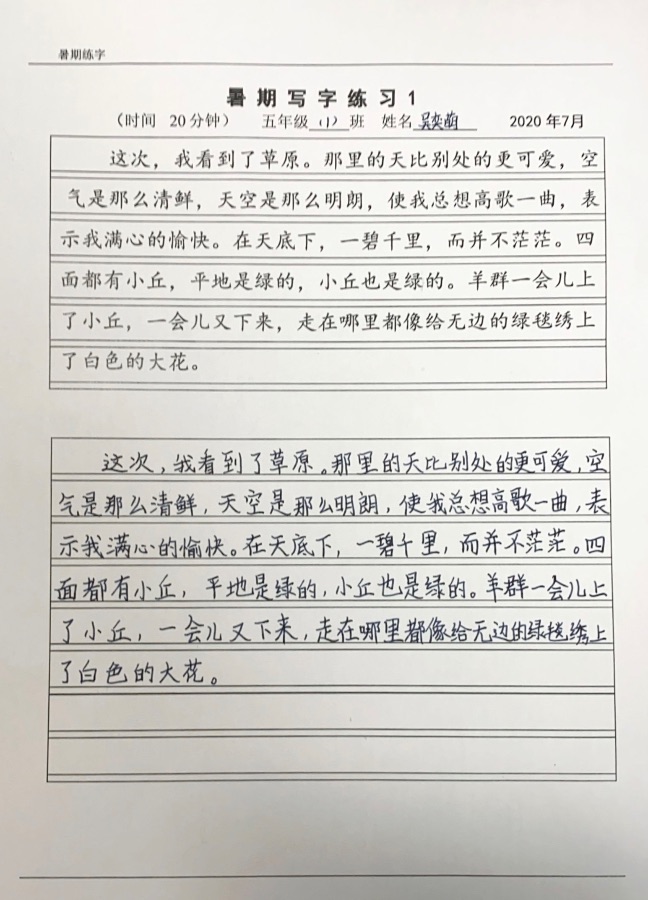 暑期练字
暑期写字练习1
（时间 20分钟） 五年级（1）班 姓名吴奕萌 2020年7月
这次，我看到了草原。那里的天比别处的更可爱，空
气是那么清鲜，天空是那么明朗，使我总想高歌一曲，表
示我满心的愉快。在天底下，一碧千里，而并不茫茫。四
面都有小丘，平地是绿的，小丘也是绿的。羊群一会儿上
了小丘，一会儿又下来，走在哪里都像给无边的绿毯绣上
了白色的大花。
这次，我看到了草原。那里的天比别处的更可爱，空
气是那么清鲜，天空是那么明朗，使我总想高歌一曲，表
示我满心的愉快。在天底下，一碧千里，而并不茫茫。四
面都有小丘，平地是绿的，小丘也是绿的。羊群一会儿上
了小丘，一会儿又下来，走在哪里都像给无边的绿毯绣上
了白色的大花。